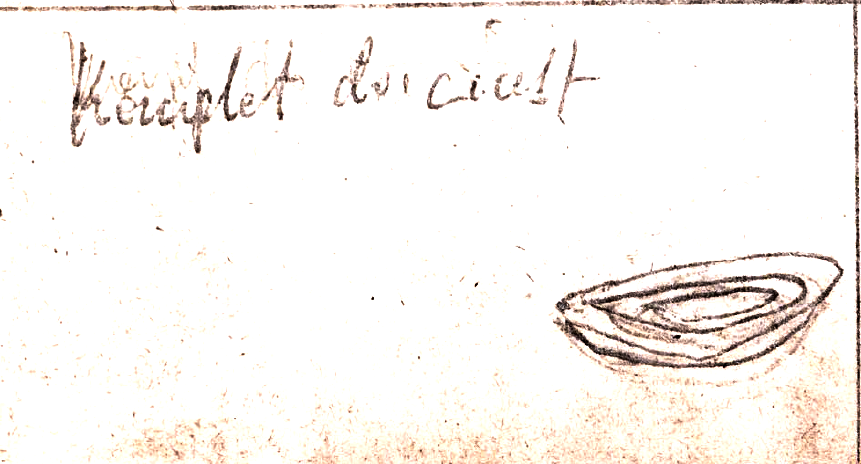 Komplet do ciast